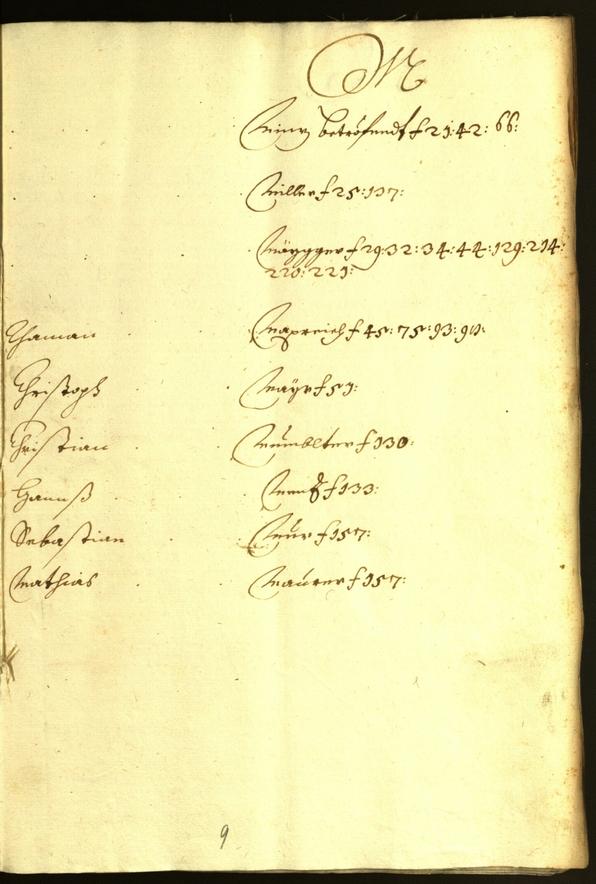 M
betröfendt f 21: 42: 66:
Miller f 25: 137:
Mäygger f 29: 32: 34: 44: 129: 214:
220: 221:
Thaman Mapreich f 45: 75: 93:
Christoph Mayr f 51:
Christian Mumblter f 130:
Hannß f 133:
Sebastian Mur f 157:
Mathias Maurer f 157:
9